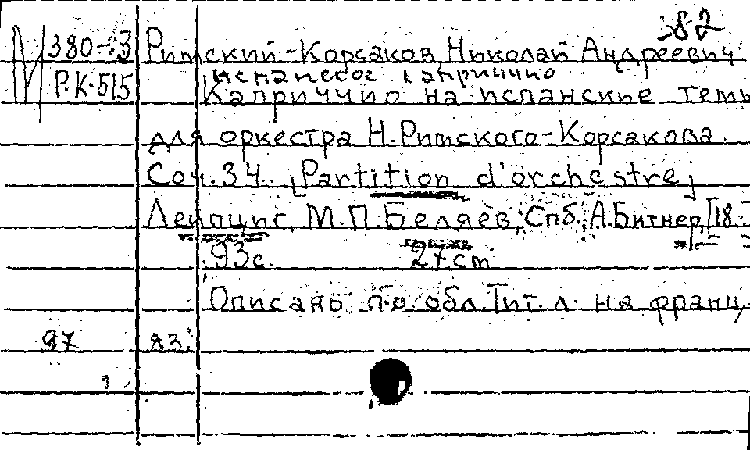 82
380-3 Римский-Корсаков, Николай Андреевич
Р.К-515 Испанское каприччио
Каприччио на испанские темы
для оркестра Н.Римского-Корсакова.
Соч.34. [Partition d'orchestre]
Лейпциг, М.П.Беляев, Спб, А.Битнер, [18-
93с. 27cm
Описань по обл. Тит.л. на франц,
97 яз.